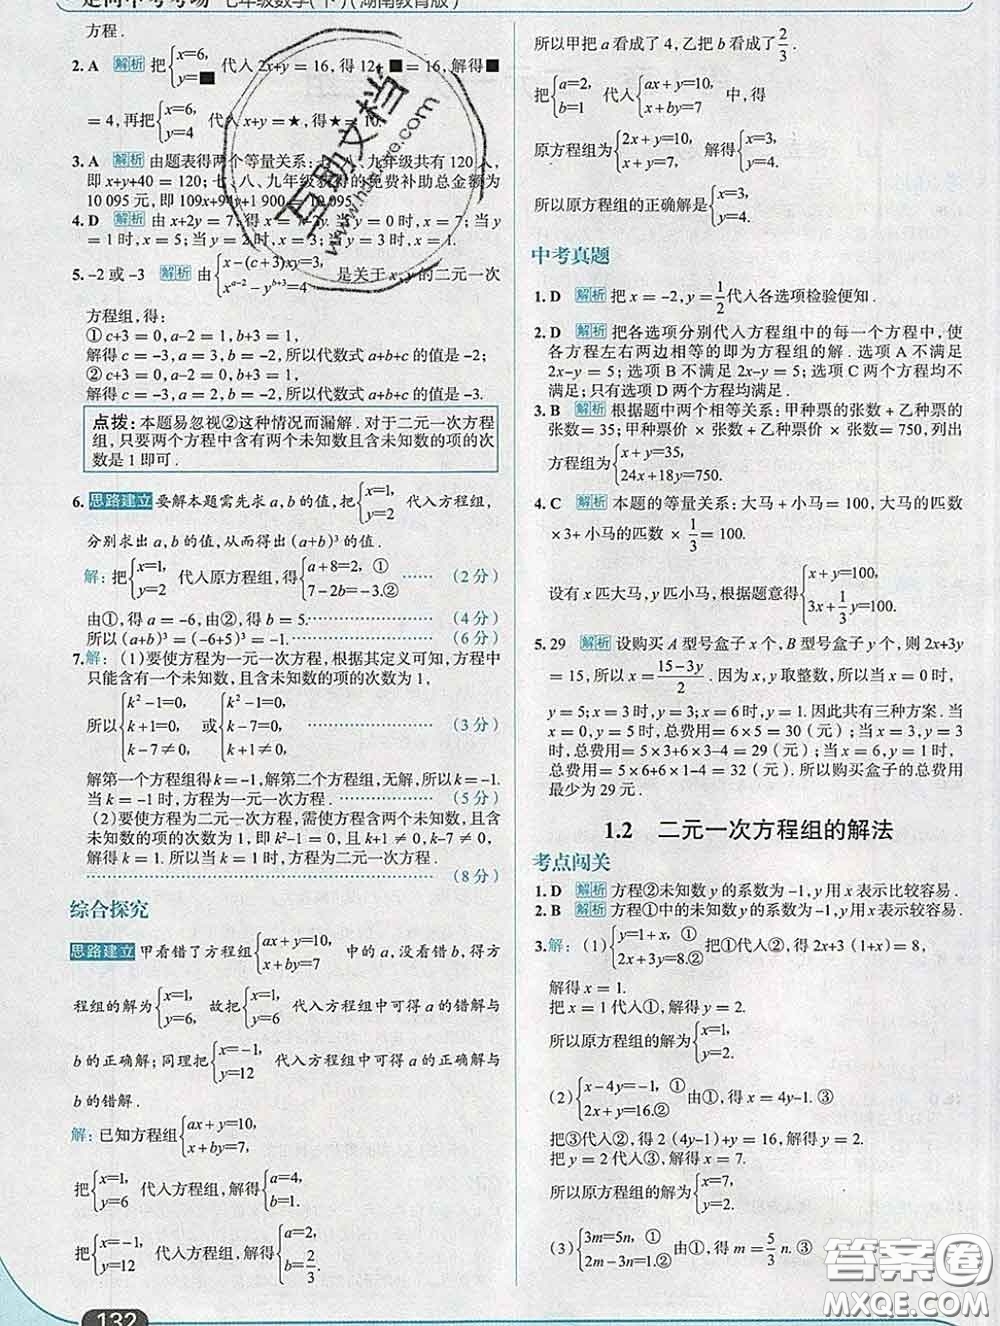 走向中考考场 七年级数学(下)(湖南教育版)
方程.
2. A 解析 把{x=6, y=■ 代入2x+y=16,得12+■=16,解得■
=4,再把{x=6, y=4 代入x+y=★,得★=10.
3. A 解析 由题表得两个等量关系:七、八、九年级共有120人,
即x+y+40=120;七、八、九年级获得的免费补助总金额为
10 095元,即109x+94y+1 900=10 095.
4. D 解析 由x+2y=7,得x=7-2y.当y=0时,x=7;当y=
1时,x=5;当y=2时,x=3;当y=3时,x=1.
5. -2或-3 解析 由{x-(c+3)xy=3, x^{a-2}-y^{b+3}=4 是关于x,y的二元一次
方程组,得:
①c+3=0,a-2=1,b+3=1,
解得c=-3,a=3,b=-2,所以代数式a+b+c的值是-2;
②c+3=0,a-2=0,b+3=1,
解得c=-3,a=2,b=-2,所以代数式a+b+c的值是-3.
点拨:本题易忽视②这种情况而漏解.对于二元一次方程
组,只要两个方程中含有两个未知数且含未知数的项的次
数是1即可.
6. 思路建立 要解本题需先求a,b的值,把{x=1, y=2 代入方程组,
分别求出a,b的值,从而得出(a+b)³的值.
解:把{x=1, y=2 代入原方程组,得{a+8=2,① 7-2b=-3.② ……(2分)
由①,得a=-6,由②,得b=5.……(4分)
所以(a+b)³=(-6+5)³=-1.……(6分)
7. 解:(1)要使方程为一元一次方程,根据其定义可知,方程中
只能含有一个未知数,且含未知数的项的次数为1,
所以{k²-1=0, k+1=0, k-7≠0 或{k²-1=0, k-7=0, k+1≠0. ……(3分)
解第一个方程组得k=-1,解第二个方程组,无解,所以k=-1.
当k=-1时,方程为一元一次方程.……(5分)
(2)要使方程为二元一次方程,需使方程含两个未知数,且含
未知数的项的次数为1,即k²-1=0,且k+1≠0,k-7≠0,
解得k=1.所以当k=1时,方程为二元一次方程.
……(8分)
综合探究
思路建立 甲看错了方程组{ax+y=10, x+by=7 中的a,没看错b,得方
程组的解为{x=1, y=6, 故把{x=1, y=6 代入方程组中可得a的错解与
b的正确解;同理把{x=-1, y=12 代入方程组中可得a的正确解与
b的错解.
解:已知方程组{ax+y=10, x+by=7,
把{x=1, y=6 代入方程组,解得{a=4, b=1.
把{x=-1, y=12 代入方程组,解得{a=2, b=2/3.
132
所以甲把a看成了4,乙把b看成了2/3.
把{a=2, b=1 代入{ax+y=10, x+by=7 中,得
原方程组为{2x+y=10, x+y=7, 解得{x=3, y=4.
所以原方程组的正确解是{x=3, y=4.
中考真题
1. D 解析 把x=-2,y=1/2代入各选项检验便知.
2. D 解析 把各选项分别代入方程组中的每一个方程中,使
各方程左右两边相等的即为方程组的解.选项A不满足
2x-y=5;选项B不满足2x-y=5;选项C两个方程均不
满足;只有选项D两个方程均满足.
3. B 解析 根据题中两个相等关系:甲种票的张数+乙种票
的张数=35;甲种票价×张数+乙种票价×张数=750,列出
方程组为{x+y=35, 24x+18y=750.
4. C 解析 本题的等量关系:大马+小马=100,大马的匹数
×3+小马的匹数×1/3=100.
设有x匹大马,y匹小马,根据题意得{x+y=100, 3x+1/3y=100.
5. 29 解析 设购买A型号盒子x个,B型号盒子y个,则2x+3y
=15,所以x=(15-3y)/2.因为x,y取整数,所以当x=0时,
y=5;x=3时,y=3;x=6时,y=1.因此共有三种方案.当
x=0,y=5时,总费用=6×5=30(元);当x=3,y=3
时,总费用=5×3+6×3-4=29(元);当x=6,y=1时,
总费用=5×6+6×1-4=32(元).所以购买盒子的总费用
最少为29元.
1.2 二元一次方程组的解法
考点闯关
1. D 解析 方程②未知数y的系数为-1,y用x表示比较容易.
2. B 解析 方程①中的未知数y的系数为-1,y用x表示较容易.
3. 解:(1){y=1+x,① 2x+3y=8.② 把①代入②,得2x+3(1+x)=8,
解得x=1.
把x=1代入①,解得y=2.
所以原方程组的解为{x=1, y=2.
(2){x-4y=-1,① 2x+y=16.② 由①,得x=4y-1.③
把③代入②,得2(4y-1)+y=16,解得y=2.
把y=2代入③,解得x=7.
所以原方程组的解为{x=7, y=2.
(3){3m=5n,① 2m-3n=1.② 由①,得m=5/3n.③
互助文档
答案圈
MXQE.COM